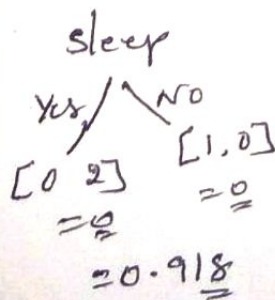 Sleep
Yes NO
[0 2] [1, 0]
= 0 = 0
= 0.918